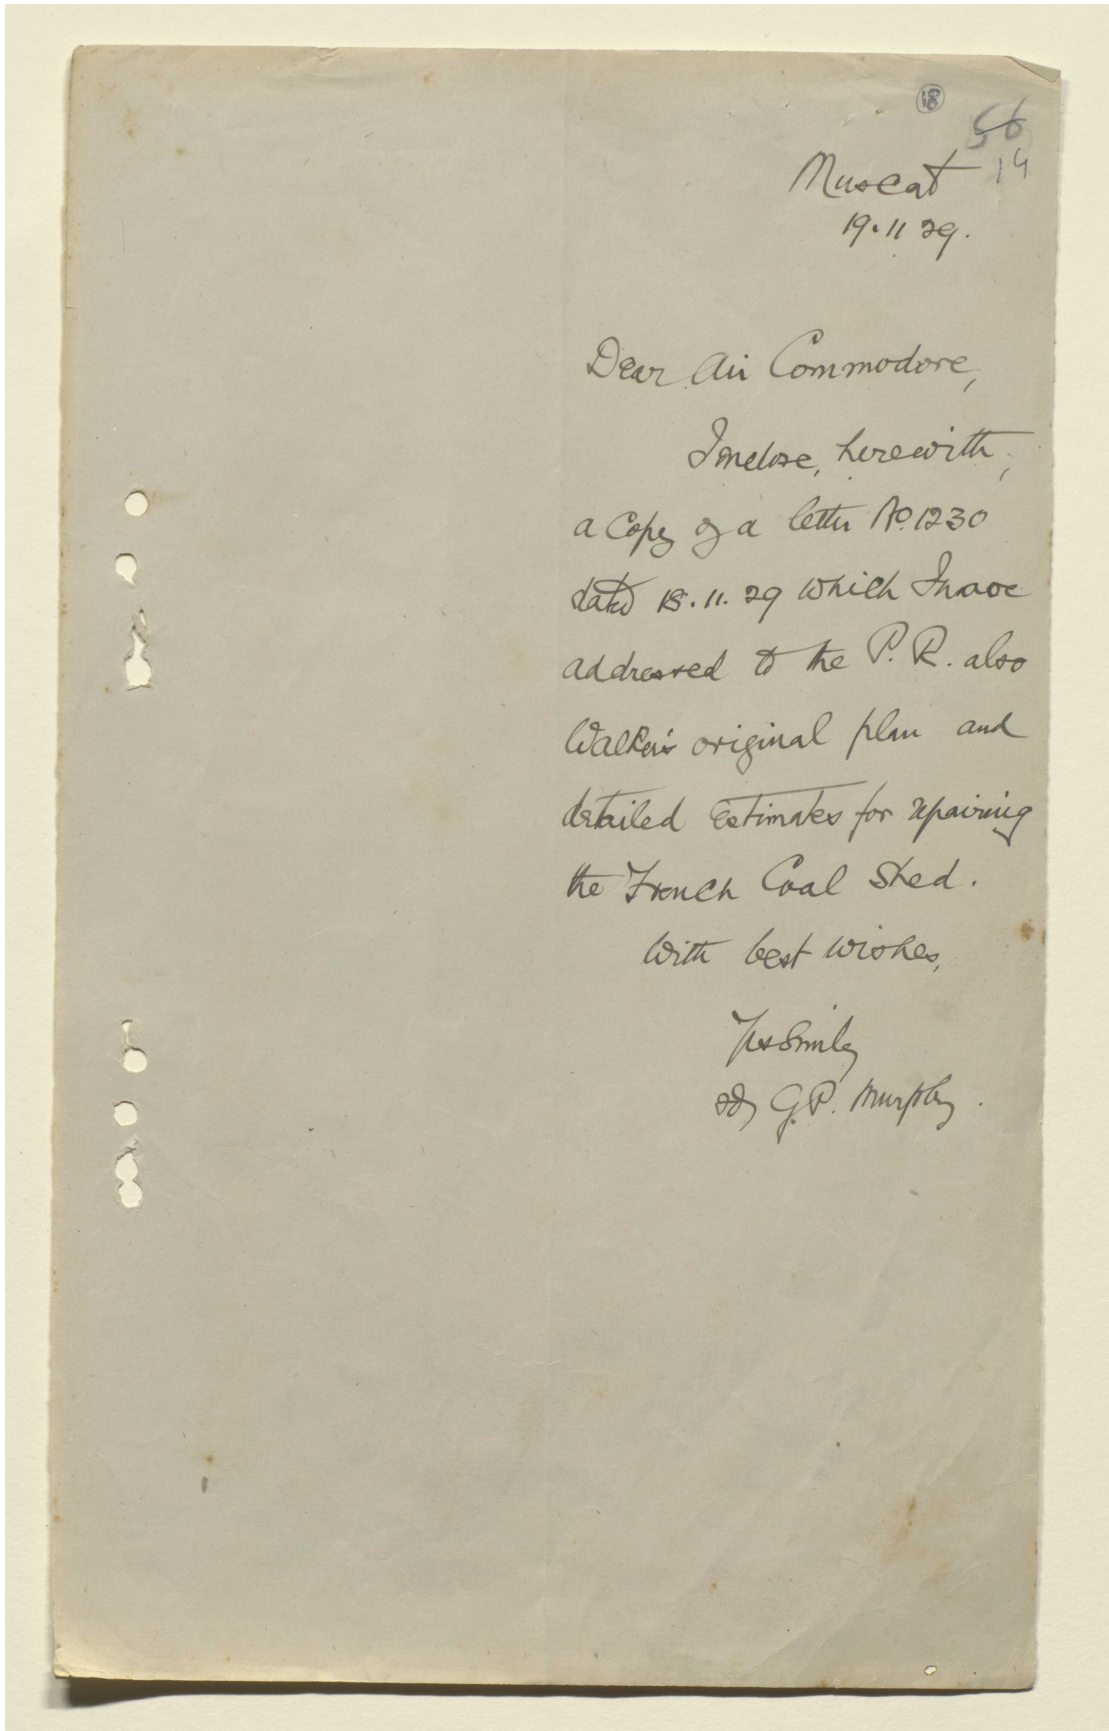 18
56
14
Muscat
19.11 29.
Dear Air Commodore,
I enclose, herewith,
a copy of a letter No. 1230
dated 18.11.29 which I have
addressed to the P.R. also
Walker's original plan and
detailed estimates for repairing
the French Coal Shed.
With best wishes,
Yrs Sincly
sd/ G.P. Murphy.